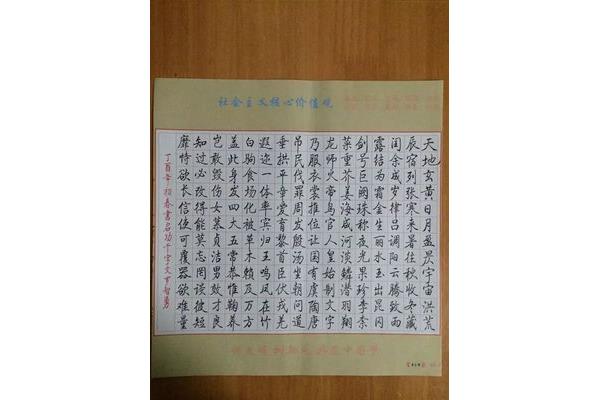 社会主义核心价值观
天地玄黄日月盈昃宇宙洪荒
辰宿列张寒来暑往秋收冬藏
闰余成岁律吕调阳云腾致雨
露结为霜金生丽水玉出昆冈
剑号巨阙珠称夜光果珍李柰
菜重芥姜海咸河淡鳞潜羽翔
龙师火帝鸟官人皇始制文字
乃服衣裳推位让国有虞陶唐
吊民伐罪周发殷汤坐朝问道
垂拱平章爱育黎首臣伏戎羌
遐迩一体率宾归王鸣凤在竹
白驹食场化被草木赖及万方
盖此身发四大五常恭惟鞠养
岂敢毁伤女慕贞洁男效才良
知过必改得能莫忘罔谈彼短
靡恃欲长信使可覆器欲难量
丁酉年春书启功千字文智勇